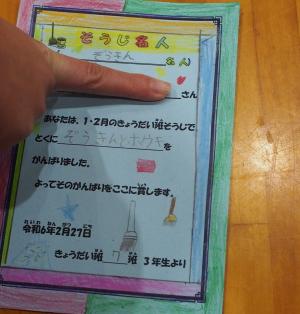 そうじ名人
ぞうきん 名人
さん
あなたは、1・2月のきょうだい班そうじで
とくに ぞうきんとホウキ を
がんばりました。
よってそのがんばりをここに賞します。
令和6年2月27日
きょうだい班 7 班 3年生より